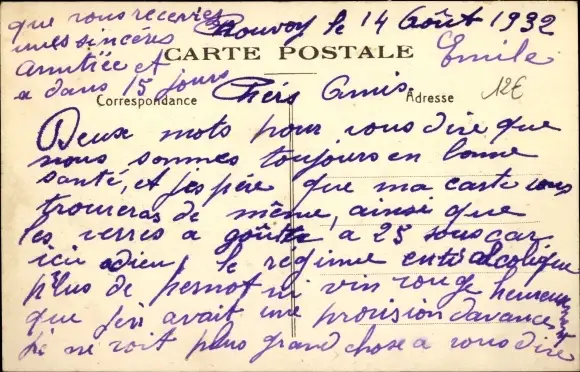 que vous recevrez
mes sincères
amitiée et
a dans 15 jours
Rouvoy le 14 Août 1932
CARTE POSTALE
Emile
12€
Correspondance
Adresse
Chérs Amis
Deux mots pour vous dire que
nous sommes toujours en bonne
santé, et j'espère que ma carte vous
trouveras de même, ainsi que
les verres a goutte a 25 sous car
ici adieu le regime entialcolique
plus de pernot ni vin rouge heureusement
que j'en avait une provision davances
Je ne voit plus grand chose a vous dire